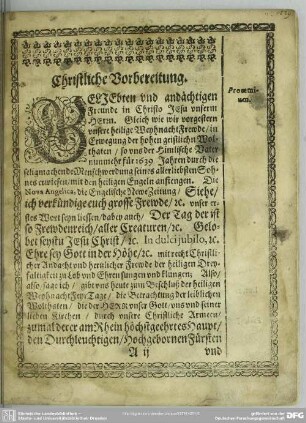 Christliche Vorbereitung.
GELJEbten vnd andächtigen
Freunde in Christo JEsu vnserm
HErrn. Gleich wie wir vorgestern
vnsere heilige Weyhnacht Frewde / in
Erwegung der hohen geistlichen Wol-
thaten / so vns der Himlische Vater
nunmehr für 1639 Jahren durch die
seligmachende Menschwerdung seines allerliebsten Soh-
nes erwiesen / mit den heiligen Engeln anfiengen. Die
Nova Angelica, die Engelische New Zeitung / Siehe /
ich verkündige euch grosse Frewde / ꝛc. vnser er-
stes Wort seyn liessen / dabey auch / Der Tag der ist
so Frewdenreich / aller Creaturen / ꝛc. Gelo-
bet seystu JEsu Christ / ꝛc. In dulci jubilo, ꝛc.
Ehre sey Gott in der Höhe / ꝛc. mit recht Christli-
cher Andacht vnd hertzlicher Frewde der heiligen Drey-
faltigkeit zu Lob vnd Ehren sungen vnd klungen. Also /
also sage ich / gibt vns heute zum Beschluß der heiligen
Weyhnacht FeyrTage / die Betrachtung der lieblichen
Wolthaten / die der HErr vnser Gott vns vnd seiner
lieben Kirchen / durch vnsere Christliche Armeen /
zumal derer am Rhein höchstgeehrtes Haupt /
den Durchleuchtigen / Hochgebornen Fürsten
A ij vnd
Prooemi-
um.